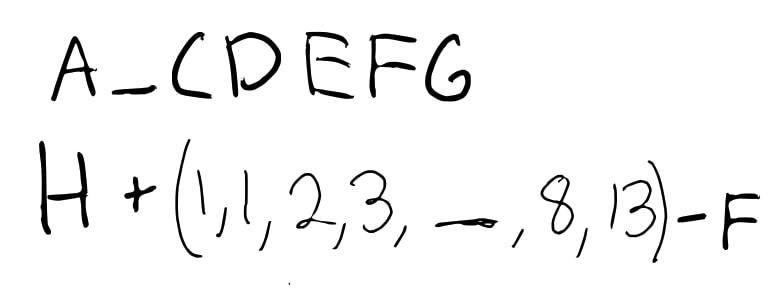 A_CDEFG
H + (1,1,2,3,_,8,13)-F